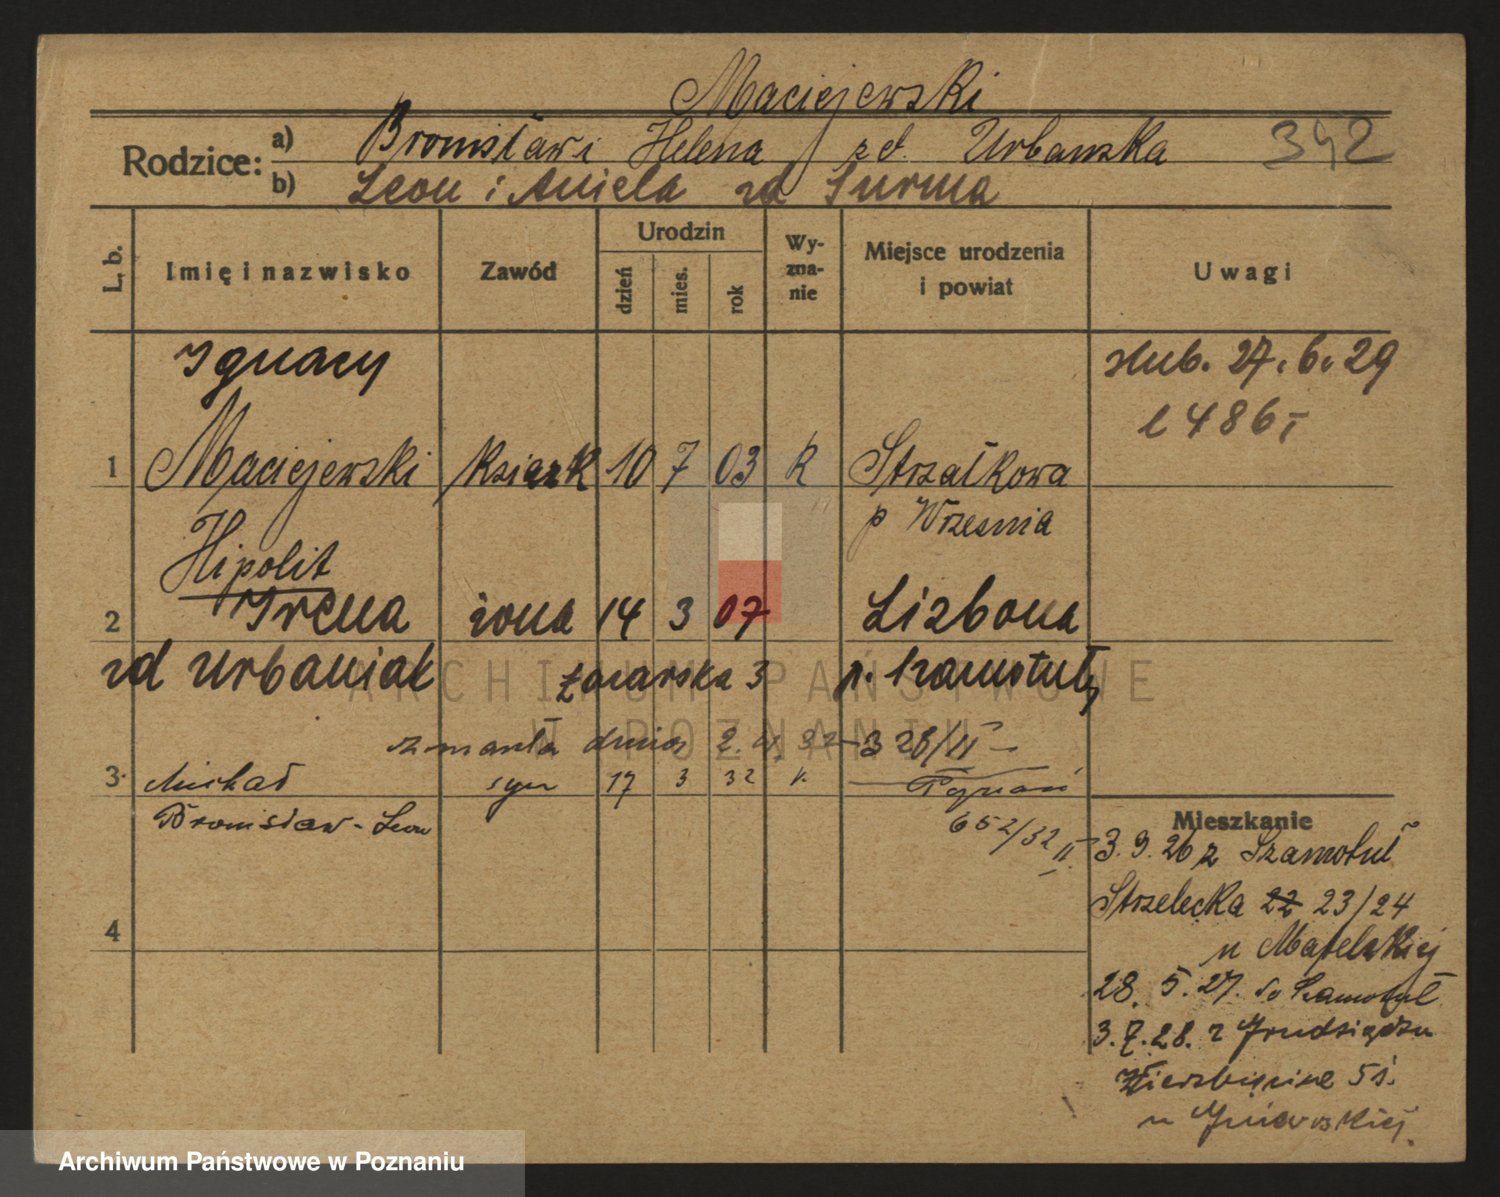 Maciejewski
Rodzice: a) Bronisław i Helena zd. Urbanska 392
b) Leon i Aniela zd Surma
L. b. Imię i nazwisko Zawód Urodzin dzień mies. rok Wyzna-nie Miejsce urodzenia i powiat Uwagi
Ignacy ślub. 27. 6. 29
l 486
1 Maciejewski 10 7 03 k Strzałkowa
p Wrzesnia
Hipolit
2 Irena żona 14 3 07 Lizbona
zd Urbaniak 3 p. Szamotuły
ARCHIWUM PAŃSTWOWE
W POZNANIU
zmarła dnia 328/II
3 Michał syn 17 3 32 k. Poznań
Bronisław - Leon 652/32 II
Mieszkanie
3. 9. 26 z Szamotuł
Strzelecka 22 23/24
u
28. 5. 27. do Szamotuł
4
3. 7. 28. z
5
u
Archiwum Państwowe w Poznaniu